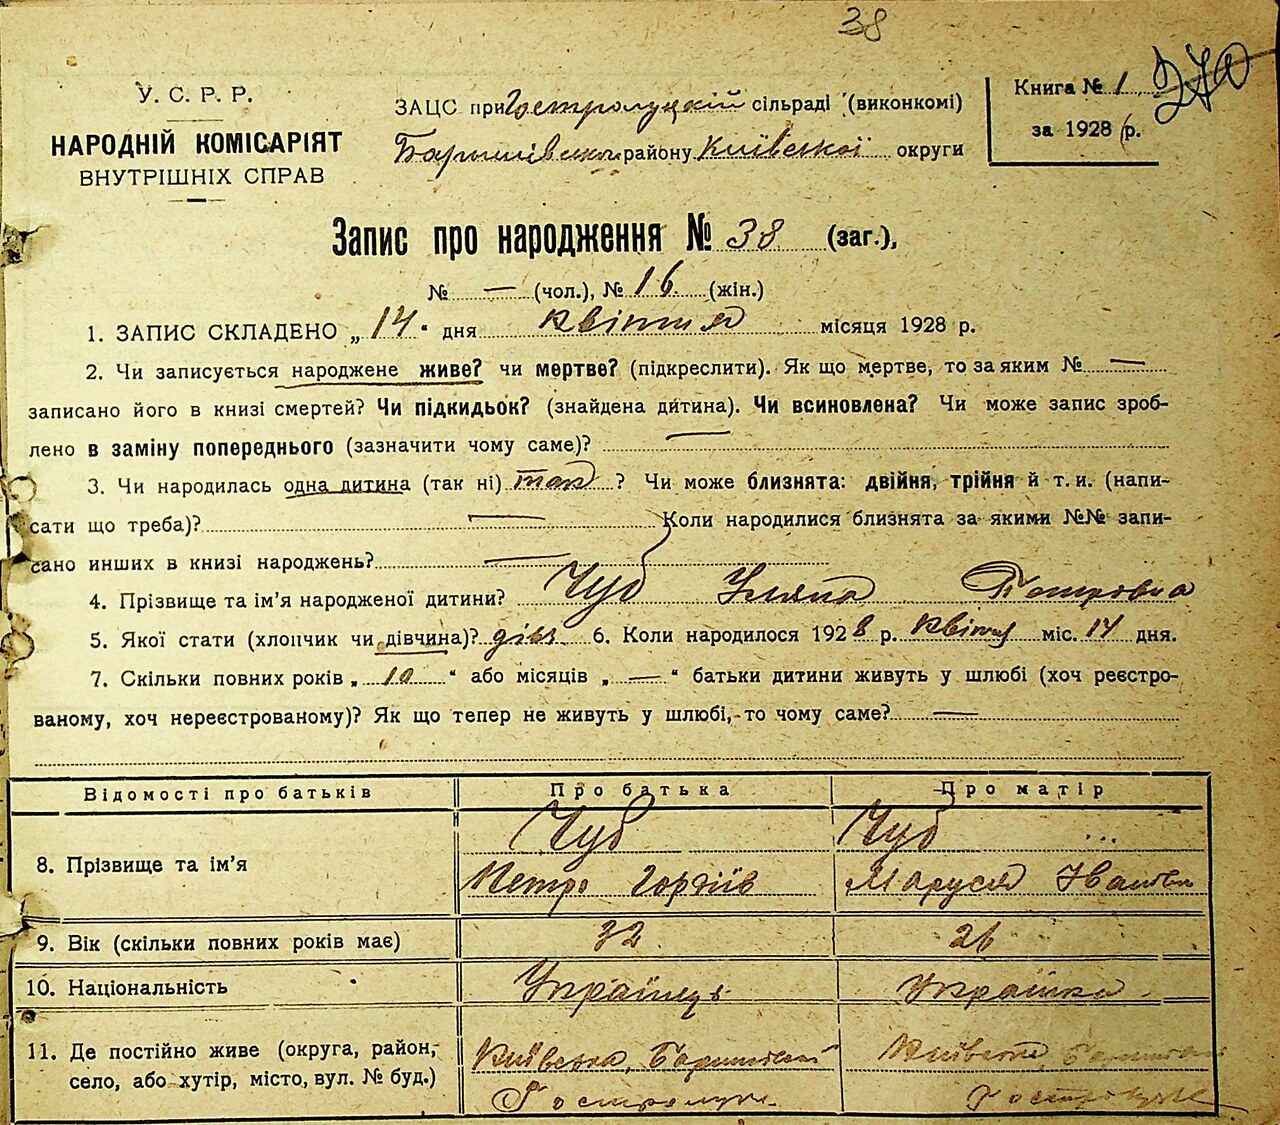 38
270
У. С. Р. Р.
НАРОДНІЙ КОМІСАРІЯТ
ВНУТРІШНІХ СПРАВ
ЗАЦС при Гостролуцькій сільраді (виконкомі)
Баришівськ району Київської округи
Книга № 1
за 1928 р.
Запис про народження № 38 (заг.),
№ — (чол.), № 16 (жін.)
1. ЗАПИС СКЛАДЕНО „14" дня квітня місяця 1928 р.
2. Чи записується народжене живе? чи мертве? (підкреслити). Як що мертве, то за яким № —
записано його в книзі смертей? Чи підкидьок? (знайдена дитина). Чи всиновлена? Чи може запис зроб-
лено в заміну попереднього (зазначити чому саме)? —
3. Чи народилась одна дитина (так ні) так ? Чи може близнята: двійня, трійня й т. и. (напи-
сати що треба)? — Коли народилися близнята за якими №№ запи-
сано инших в книзі народжень? —
4. Прізвище та ім'я народженої дитини? Чуб Уляна Петровна
5. Якої стати (хлопчик чи дівчина)? дівч 6. Коли народилося 1928 р. квітня міс. 14 дня.
7. Скільки повних років „ 10 " або місяців „ — " батьки дитини живуть у шлюбі (хоч реєстро-
ваному, хоч нереєстрованому)? Як що тепер не живуть у шлюбі, то чому саме? —
Відомості про батьків Про батька Про матір
8. Прізвище та ім'я Чуб Чуб
Петро Гордіїв Маруся Іванівн
9. Вік (скільки повних років має) 32 26
10. Національність Українець Українка
11. Де постійно живе (округа, район,
село, або хутір, місто, вул. № буд.)
Київська, Баришівський Київська,
Гостролуч Гостролуч